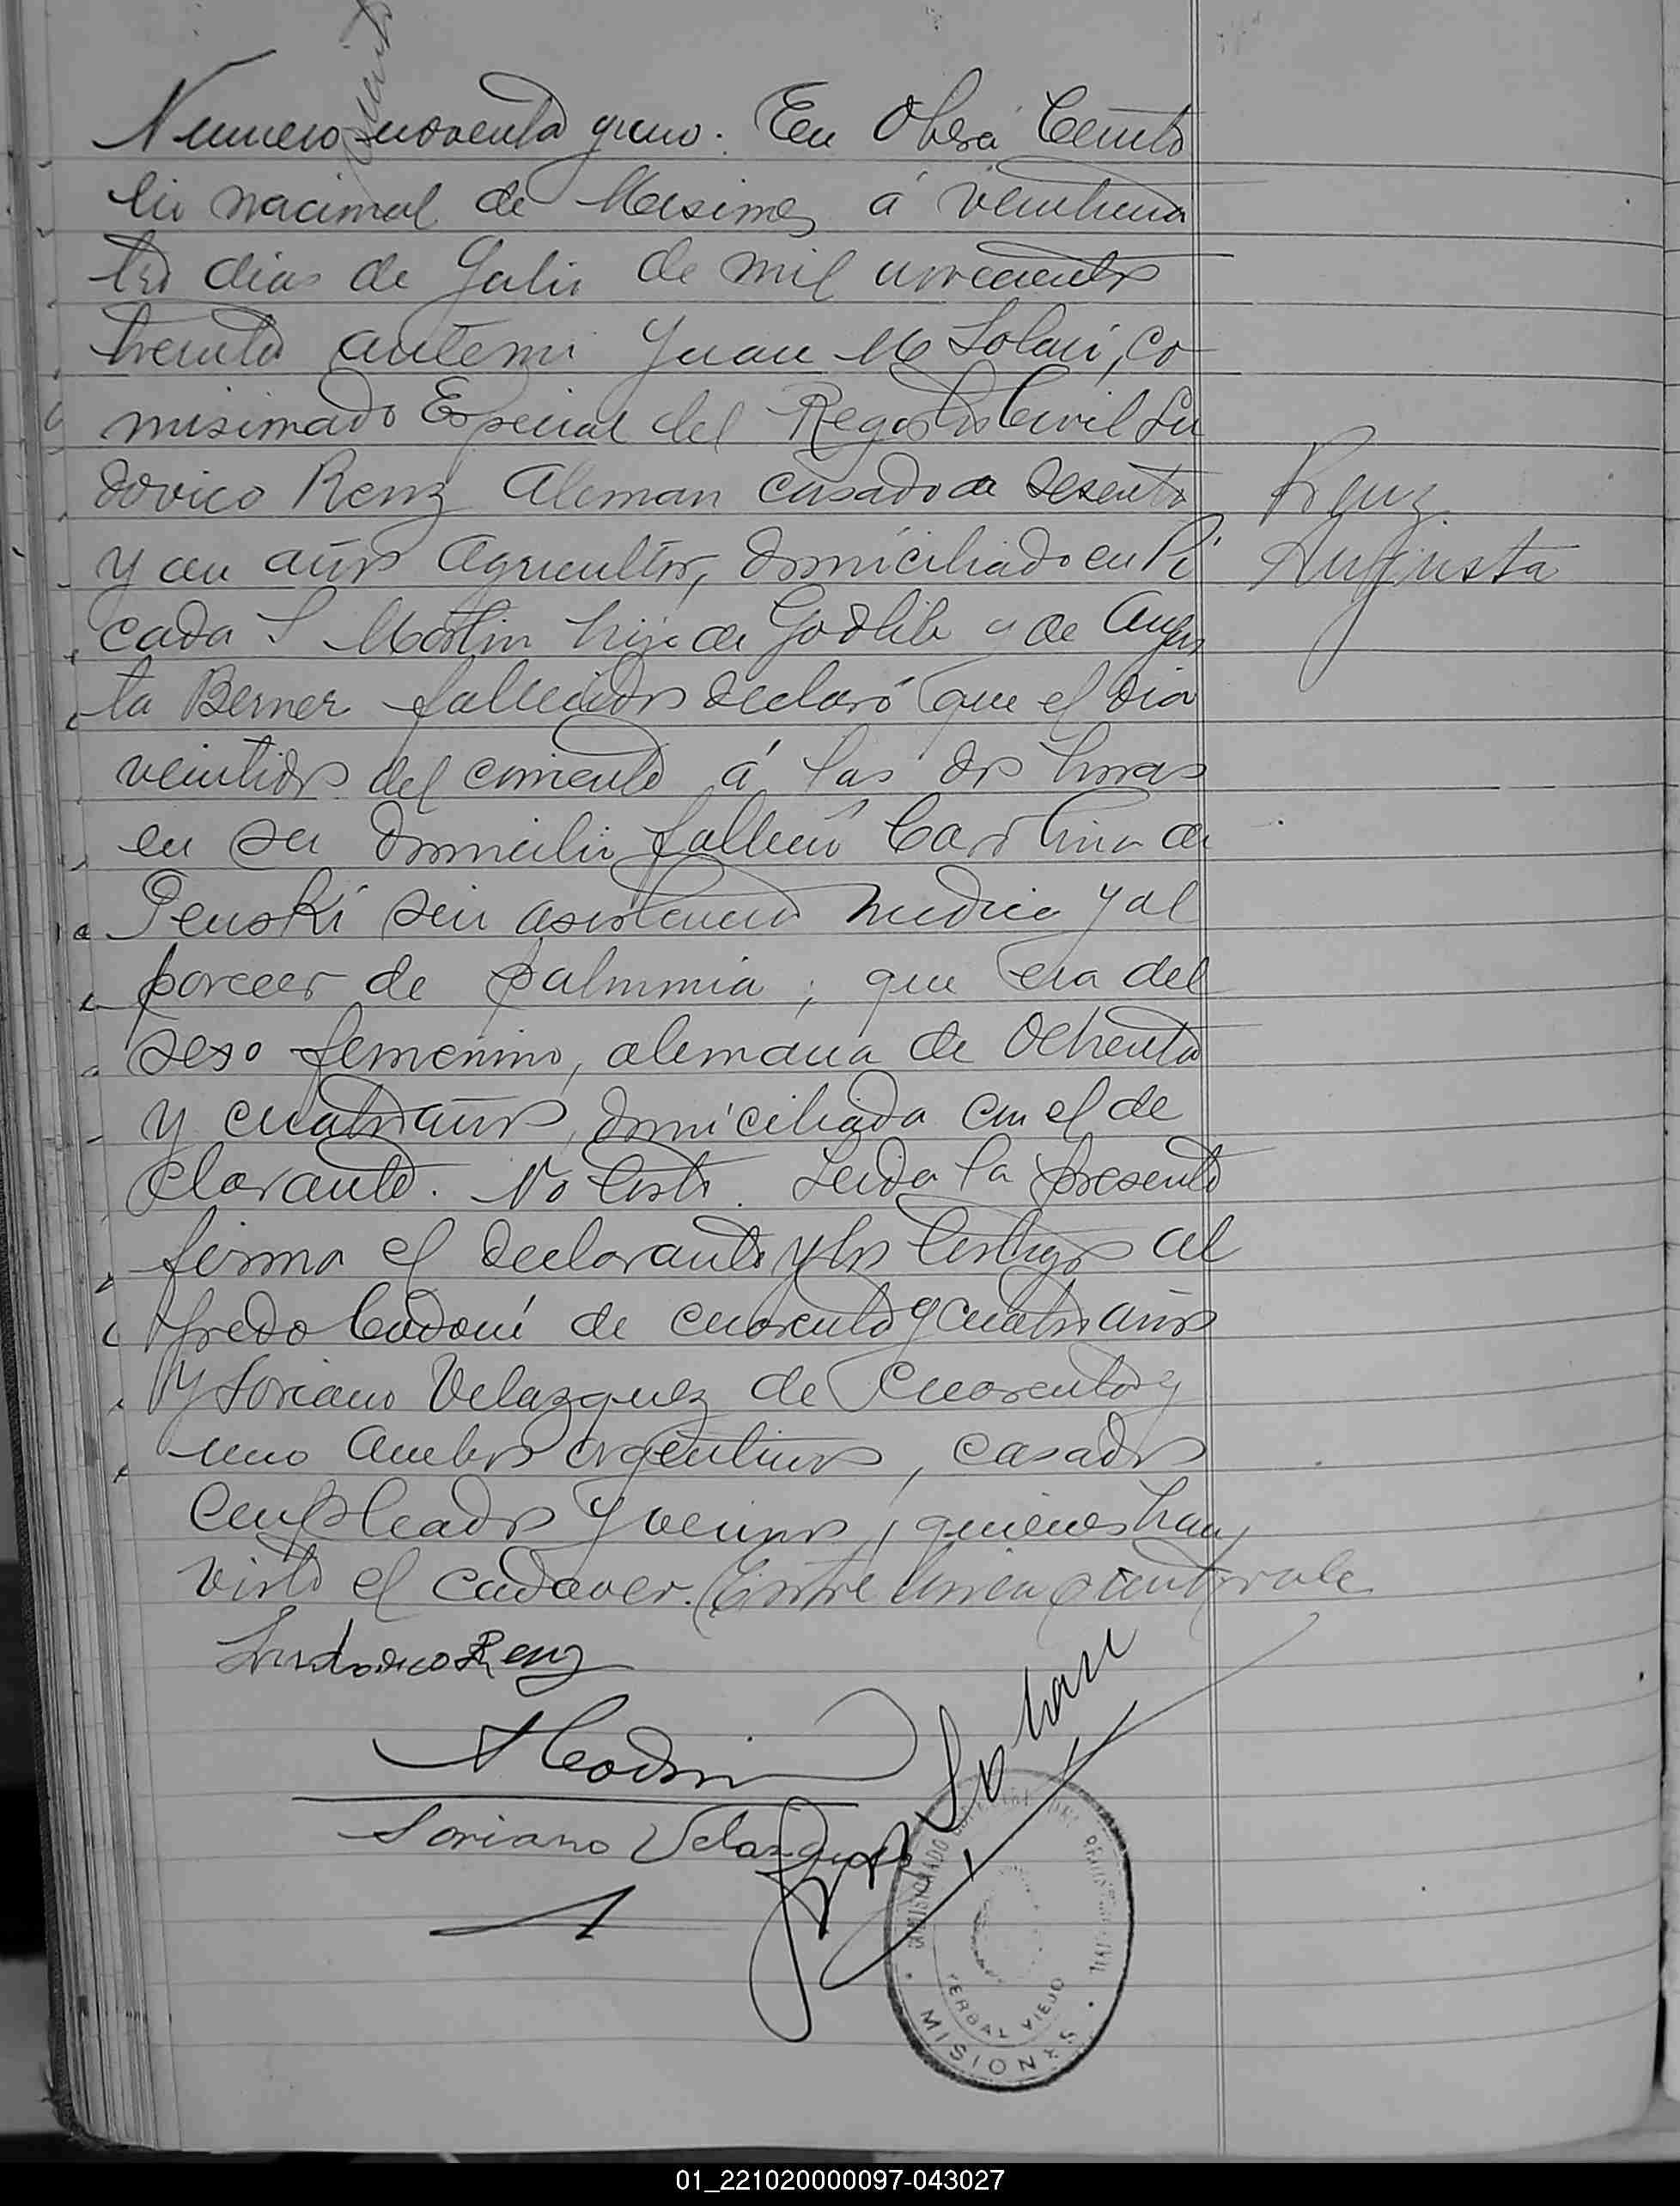 Numero noventa y uno. En Oberá Territo
rio nacional de Misiones á veinticua
tro dias de Julio de mil novecientos
treinta ante mi Juan M Solari, co
misionado Especial del Registro Civil Lu
dovico Renz Aleman casado de sesenta
y un años Agricultor, domiciliado en Pi
cada S Martin hijo de Godlib y de Augus
ta Berner fallecidos declaró que el dia
veintidos del corriente á las dos horas
en su domicilio falleció Carolina de
Penski sin asistencia medica y al
parecer de pulmonia; que era del
sexo femenino, alemana de Ochenta
y cuatro años, domiciliada con el de
clarante. No testó. Leida la presente
firma el declarante y los testigos Al
fredo Codoni de cuarenta y cuatro años
y Soriano Velazquez de Cuarenta y
uno ambos argentinos, casados
empleados y vecinos, quienes han
visto el cadaver. Entre linea vale
Renz
Augusta
Ludovico Renz
A Codoni
Soriano Velazquez
Juan M Solari
COMISIONADO ESPECIAL DEL REGISTRO CIVIL
YERBAL VIEJO
MISIONES
01_221020000097-043027